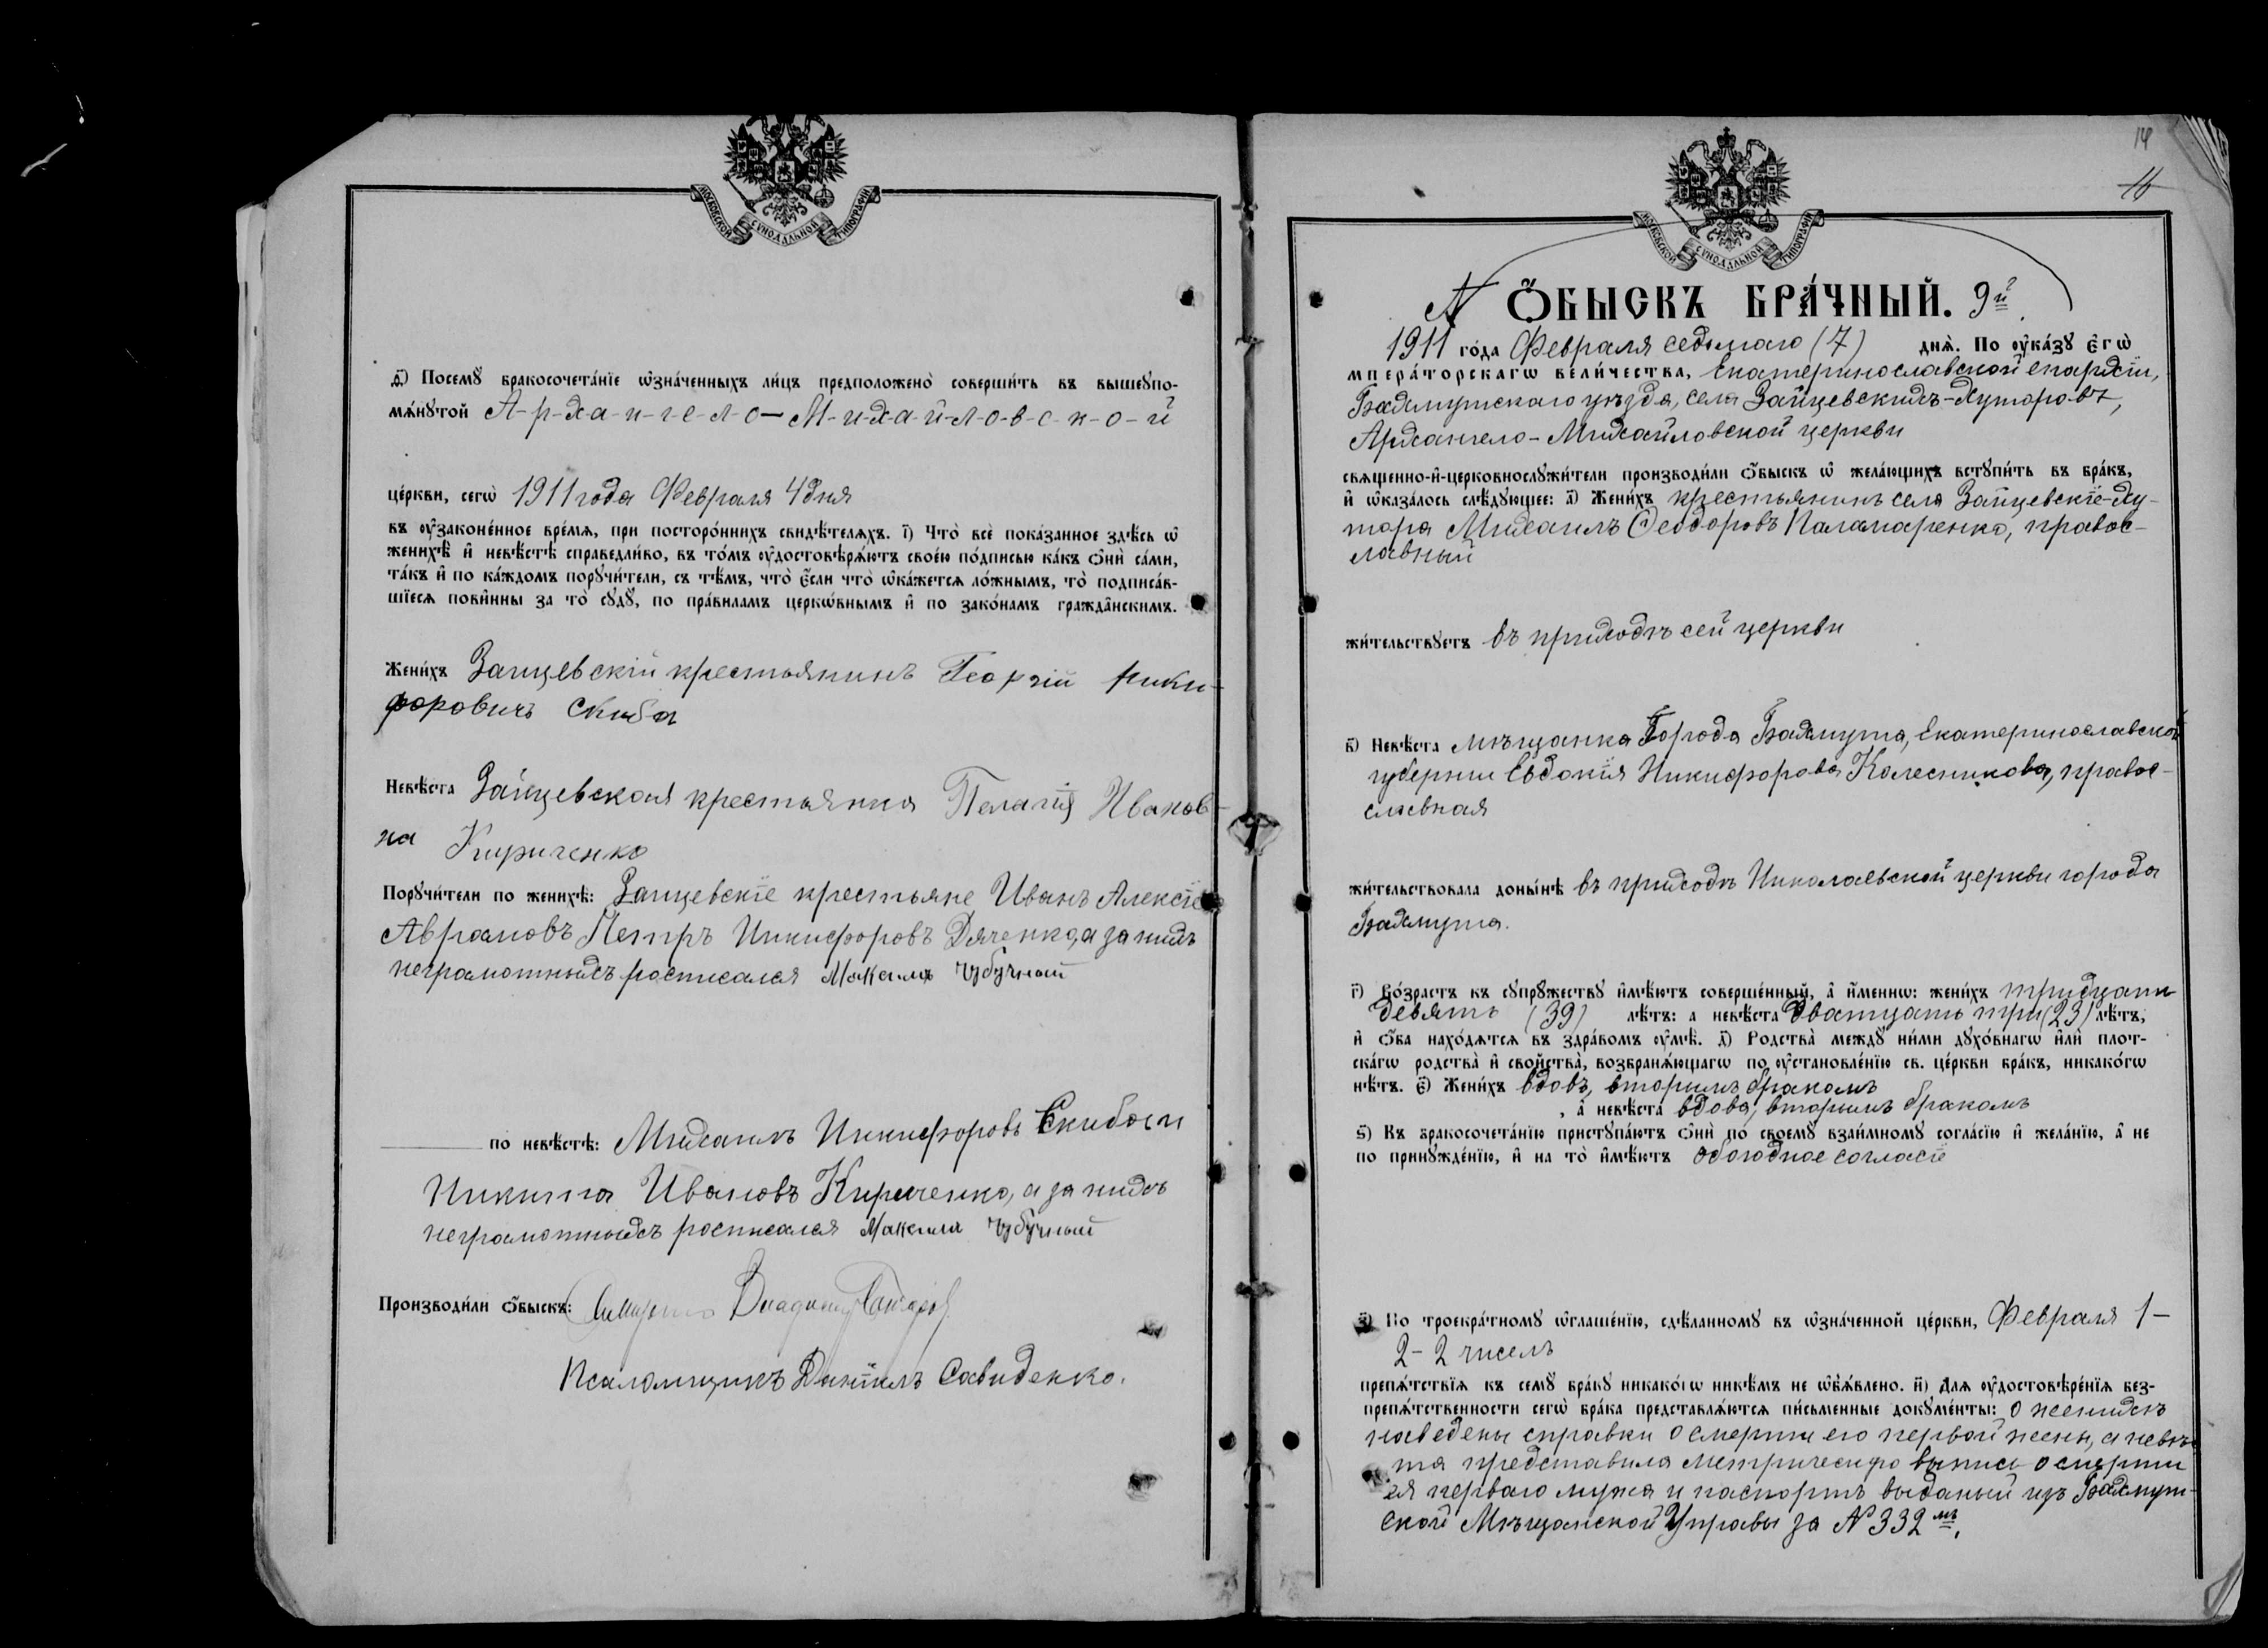 МОСКОВСКОЙ СѴНОДАЛЬНОЙ ТИПОГРАФІИ
Ѳ҃) Посемꙋ̀ бракосочета́нїе ѡ҆зна́ченныхъ ли́цъ предположено̀ соверши́ть въ вышеꙋпо-
мѧ́нꙋтой А-р-ха-н-г-е-л-о-М-и-ха-й-л-о-в-с-к-о-й
це́ркви, сегѡ̀ 1911 года Февраля 4 дня
въ ᲂу҆законе́нное вре́мѧ, при посторо́ннихъ свидѣ́телѧхъ. І҃) Что̀ всѐ пока́занное здѣ́сь ѡ҆
женихѣ̀ и҆ невѣ́стѣ справедли́во, въ то́мъ ᲂу҆достовѣрѧ́ютъ свое́ю по́дписью ка́къ ѻ҆нѝ са́ми,
та́къ и҆ по ка́ждомъ порꙋчи́тели, съ тѣ́мъ, что̀ є҆́сли что̀ ѡ҆ка́жетсѧ ло́жнымъ, то̀ подписа́в-
шїесѧ пови́нны за то̀ сꙋдꙋ̀, по пра́виламъ церко́внымъ и҆ по зако́намъ гражда́нскимъ.
Жени́хъ Зайцевскій крестьянинъ Георгій Ники-
форовичъ Скиба
Невѣ́ста Зайцевская крестьянка Пелагія Иванов-
на Кириченко
Порꙋчи́тели по женихѣ̀: Зайцевскіе крестьяне Иванъ Алексіе
Аврамовъ Петръ Никифоровъ Дяченко, а за нихъ
неграмотныхъ росписался Максимъ Чубучный
по невѣ́стѣ: Михаилъ Никифоровъ Скиба и
Никита Ивановъ Кириченко, а за нихъ
неграмотныхъ росписался Максимъ Чубучный
Производи́ли ѻ҆́быскъ: Владимиръ
Псаломщикъ Даніилъ Савиденко.
14
16
МОСКОВСКОЙ СѴНОДАЛЬНОЙ ТИПОГРАФІИ
N Ѻ҆́БЫСКЪ БРА́ЧНЫЙ. 9й
1911 го́да Февраля седьмаго (7) днѧ̀. По ᲂу҆ка́зꙋ є҆гѡ̀
мпера́торскагѡ вели́чества, Екатеринославской епархіи,
Бахмутскаго уѣзда, села Зайцевскихъ-Хуторовъ,
Архангело-Михайловской церкви
свѧщенно-и҆-церковнослꙋжи́тели производи́ли ѻ҆́быскъ ѡ҆ жела́ющихъ встꙋпи́ть въ бра́къ,
и҆ ѡ҆каза́лось слѣ́дꙋющее: а҃) Жени́хъ крестьянинъ села Зайцевскіе-Ху-
тора Михаилъ Ѳеодоровъ Паламаренко, правос-
лавный
жи́тельствꙋетъ въ приходѣ сей церкви
в҃) Невѣ́ста мѣщанка Города Бахмута, Екатеринославской
губерніи Евдокія Никифорова Колесникова, правос-
славная
жи́тельствовала доны́нѣ въ приходѣ Николаевской церкви города
Бахмута.
г҃) Во́зрастъ къ сꙋпрꙋ́жествꙋ и҆мѣ́ютъ соверше́нный, а҆ и҆́меннѡ: жени́хъ тридцать
девять (39) лѣ́тъ: а невѣ́ста дватцать три (23) лѣ́тъ,
и҆ ѻ҆́ба нахо́дѧтсѧ въ здра́вомъ ᲂу҆мѣ̀. д҃) Родства̀ междꙋ̀ ни́ми дꙋхо́внагѡ и҆лѝ плот-
ска́гѡ родства̀ и҆ сво́йства̀, возбранѧ́ющагѡ по ᲂу҆становле́нїю св. це́ркви бра́къ, никако́гѡ
нѣ́тъ. є҃) Жени́хъ вдовъ, вторымъ бракомъ
, а҆ невѣ́ста вдова, вторымъ бракомъ
ѕ҃) Къ бракосочета́нїю пристꙋпа́ютъ ѻ҆нѝ по своемꙋ̀ взаи́мномꙋ согла́сїю и҆ жела́нїю, а҆ не
по принꙋжде́нїю, и҆ на то̀ и҆мѣ́ютъ обоюдное согласіе
з҃) По троекра́тномꙋ ѡ҆глаше́нїю, сдѣ́ланномꙋ въ ѡ҆зна́ченной це́ркви, Февраля 1-
2-2 чиселъ
препѧ́тствїѧ къ семꙋ̀ бра́кꙋ никако́гѡ никѣ́мъ не ѡ҆б̾ѧ́влено. и҃) Для ᲂу҆достовѣре́нїѧ без-
препѧ́тственности сегѡ̀ бра́ка представлѧ́ютсѧ пи́сьменные докꙋме́нты: о женихѣ
наведены справки о смерти его первой жены, а невѣс-
та представила метрическую выпись о смерти
ея перваго мужа и паспортъ выданый изъ Бахмут-
ской Мѣщанской Управы за № 332мъ.